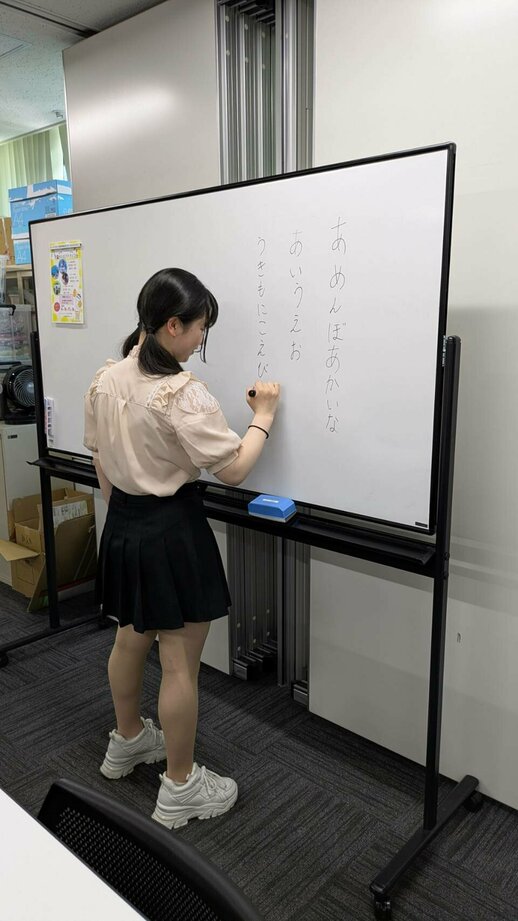 あめんぼあかいな
あいうえお
うきもにこえび